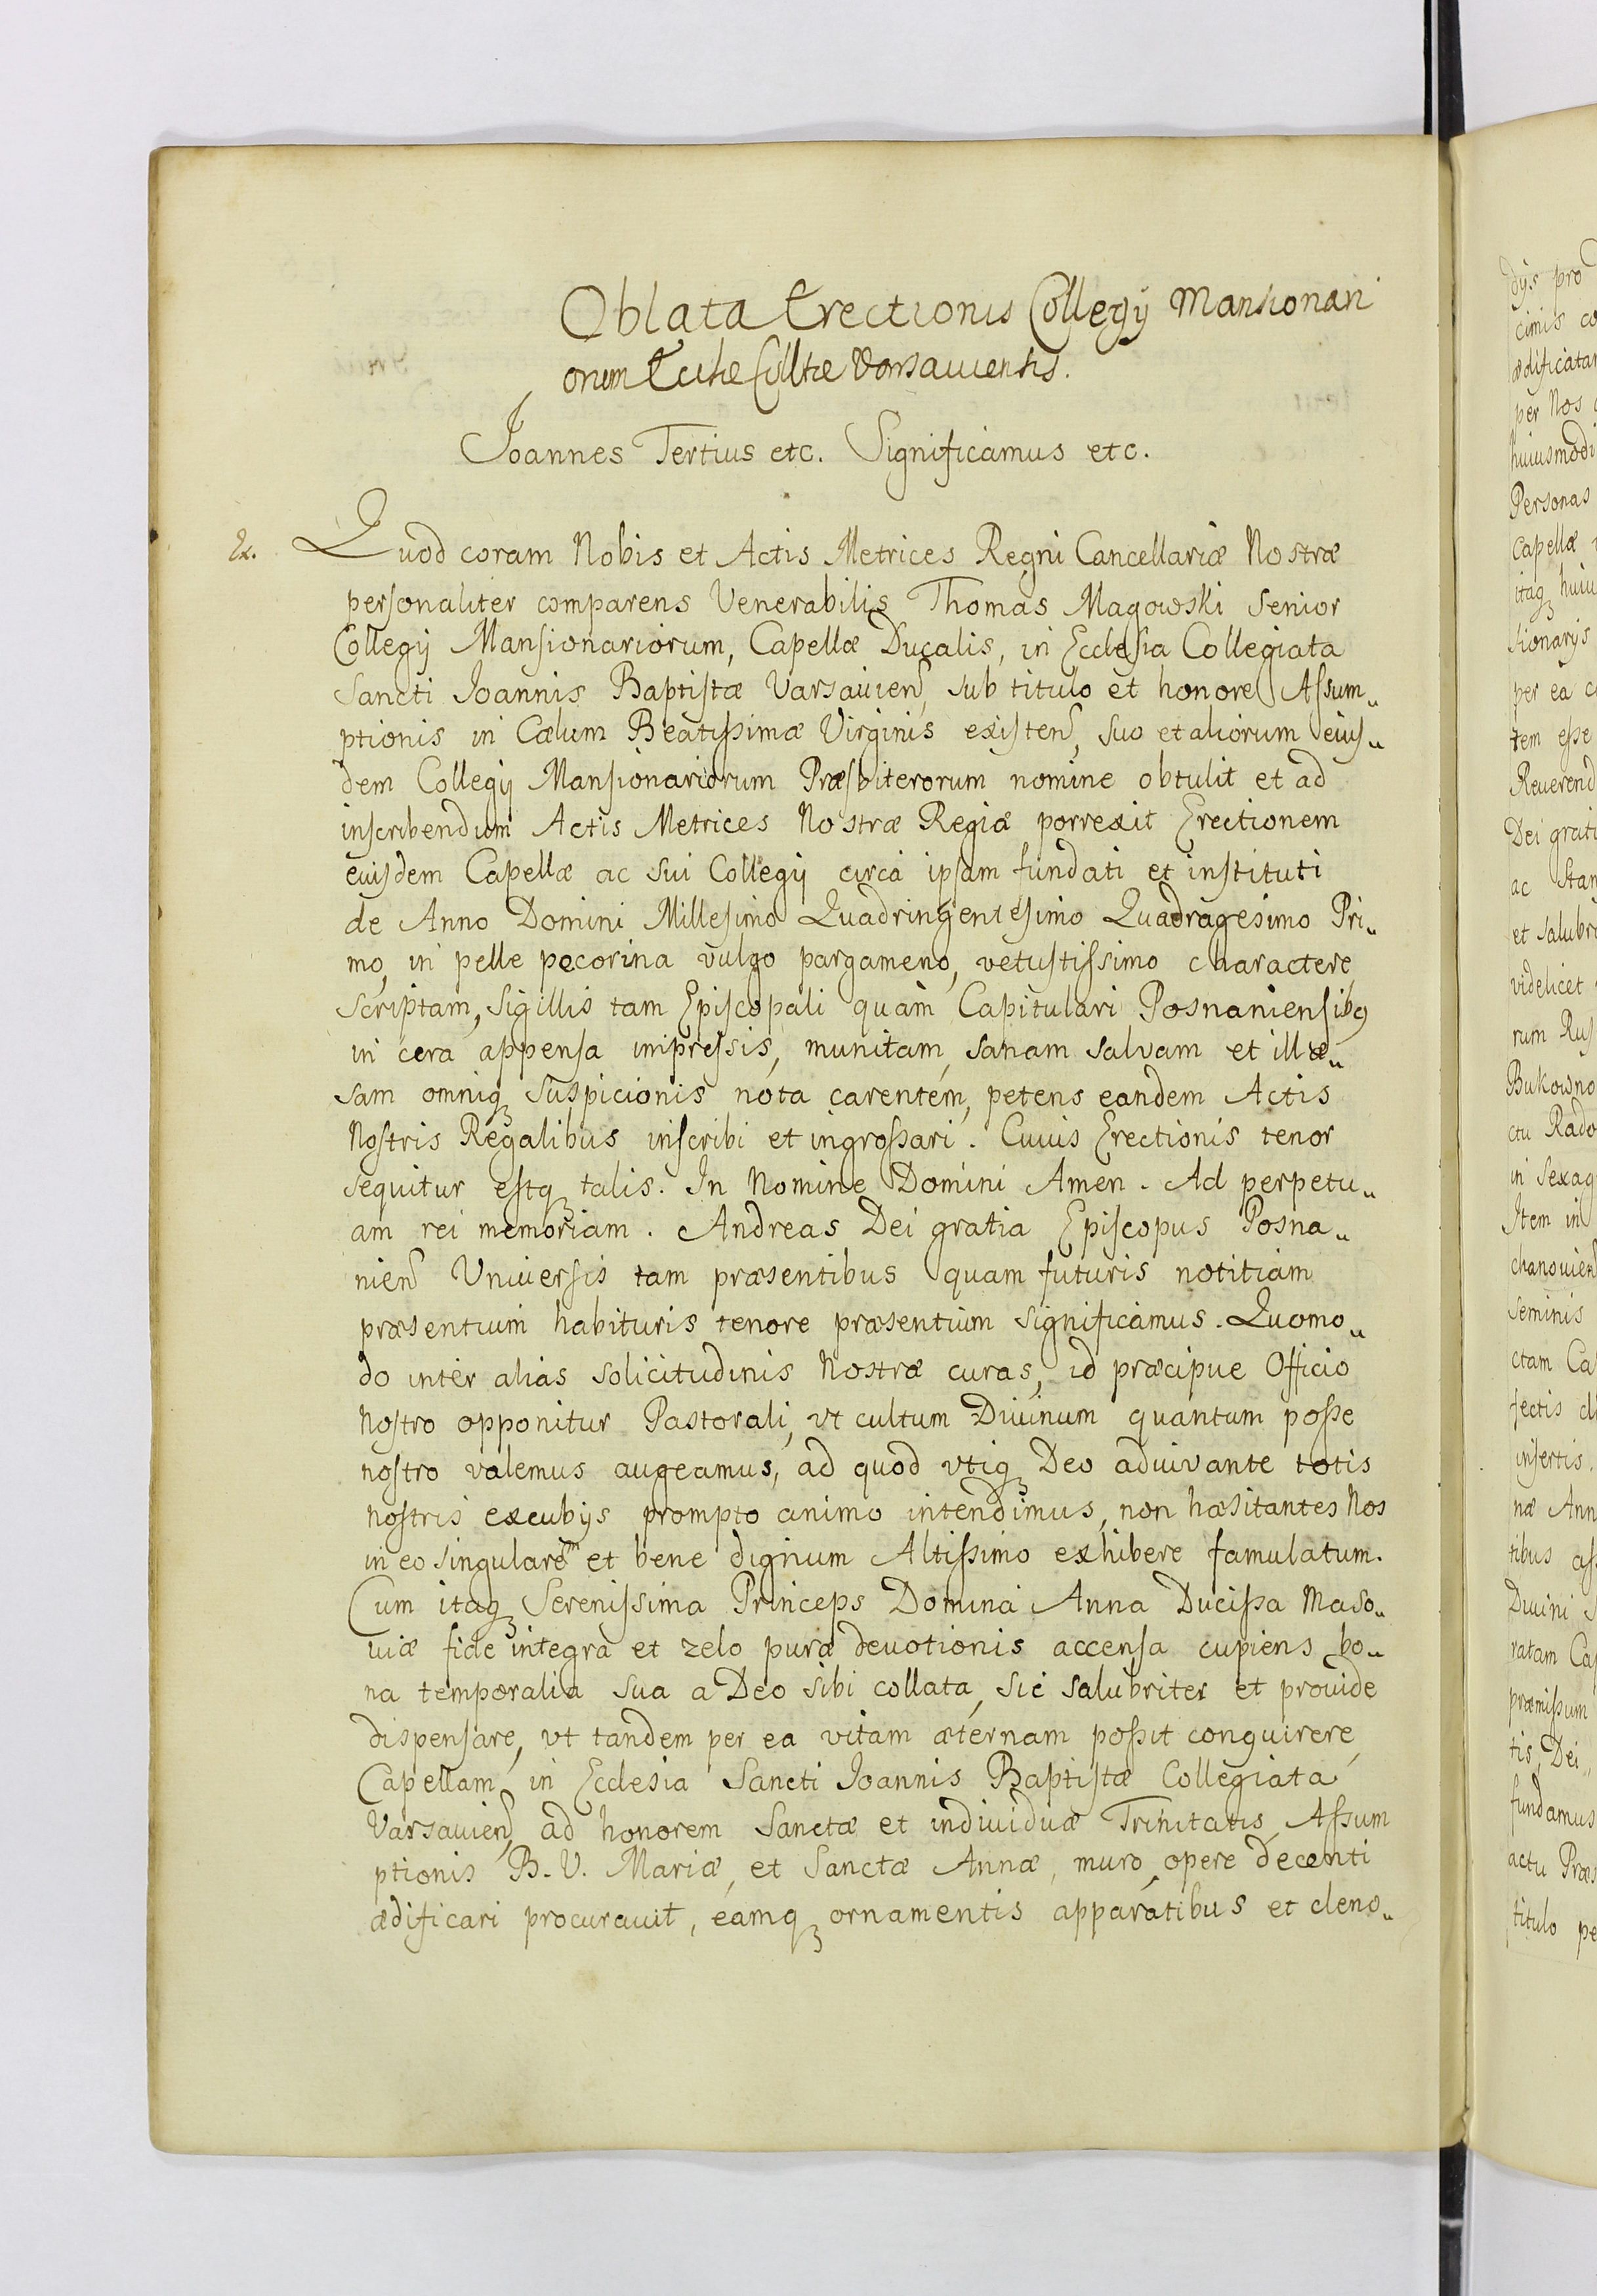 Oblata Erectionis Collegij Mansionari
orum Ecclae Colltae Varsauiensis.
Joannes Tertius etc. Significamus etc.
Ex. Quod coram Nobis et Actis Metrices Regni Cancellariæ Nostræ
personaliter comparens Venerabilis Thomas Magowski Senior
Collegij Mansionariorum, Capellæ Ducalis, in Ecclesia Collegiata
Sancti Joannis Baptistæ Varsauien, sub titulo et honore Assum„
ptionis in Cælum Beatissimæ Virginis existen, suo et aliorum eius„
dem Collegij Mansionariorum Præsbiterorum nomine obtulit et ad
inscribendum Actis Metrices Nostræ Regiæ porrexit Erectionem
euisdem Capellæ ac sui Collegij circa ipsam fundati et instituti
de Anno Domini Millesimo Quadringentesimo Quadragesimo Pri„
mo, in pelle pecorina vulgo pargameno, vetustissimo charactere
scriptam, Sigillis tam Episcopali quam Capitulari Posnaniensibq
in cera appensa impressis, munitam, sanam salvam et illæ„
sam omniq suspicionis nota carentem, petens eandem Actis
Nostris Regalibus inscribi et ingrossari. Cuius Erectionis tenor
sequitur estq talis. In Nomine Domini Amen. Ad perpetu„
am rei memoriam. Andreas Dei gratia Episcopus Posna„
nien Vniuersis tam præsentibus quam futuris notitiam
præsentium habituris tenore præsentium significamus. Quomo„
do inter alias solicitudinis Nostræ curas, id præcipue Officio
Nostro opponitur Pastorali, vt cultum Diuinum quantum posse
nostro valemus augeamus, ad quod vtiq Deo adiuvante totis
nostris excubijs prompto animo intendimus, non hæsitantes Nos
in eo singularem et bene dignum Altissimo exhibere famulatum.
Cum itaq Serenissima Princeps Domina Anna Ducissa Maso„
uiæ fide integra et zelo puræ deuotionis accensa cupiens bo„
na temporalia sua a Deo sibi collata, sic salubriter et prouide
dispensare, vt tandem per ea vitam æternam possit conquirere,
Capellam in Ecclesia Sancti Joannis Baptistæ Collegiata
Varsauien, ad honorem Sanctæ et indiuiduæ Trinitatis, Assum
ptionis B. V. Mariæ, et Sanctæ Annæ, muro, opere decenti
ædificari procurauit, eamq ornamentis apparatibus et cleno„
dys pro
cimis co
ædificatam
per Nos
huiusmodi
Personas
Capellæ
itaq huiu
sionarys
per ea
tem esse
Reuerend
Dei grati
ac Stan
et salubri
videlicet
rum Rus
Bukowno
ctu Rado
in Sexag
Item in
chanouien
seminis
ctam Ca
fectis
insertis.
næ Ann
tibus ass
Diuini
ratam Cap
præmissum
tis, Dei
fundamus
actu Præs
titulo pe